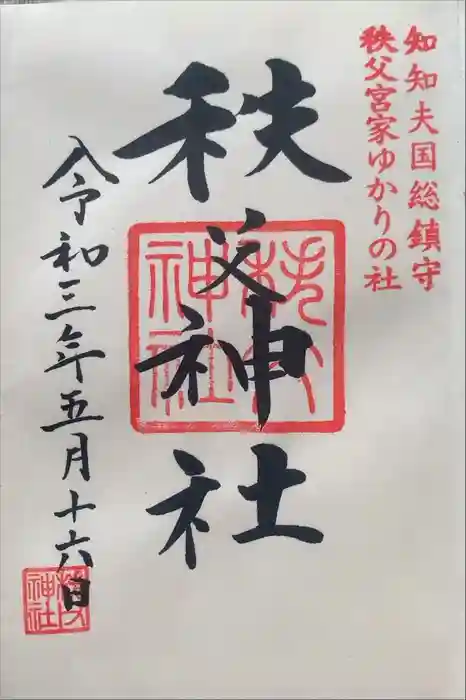 知知夫国総鎮守
秩父宮家ゆかりの社
秩父神社
秩父
神社
令和三年五月十六日
秩父
神社